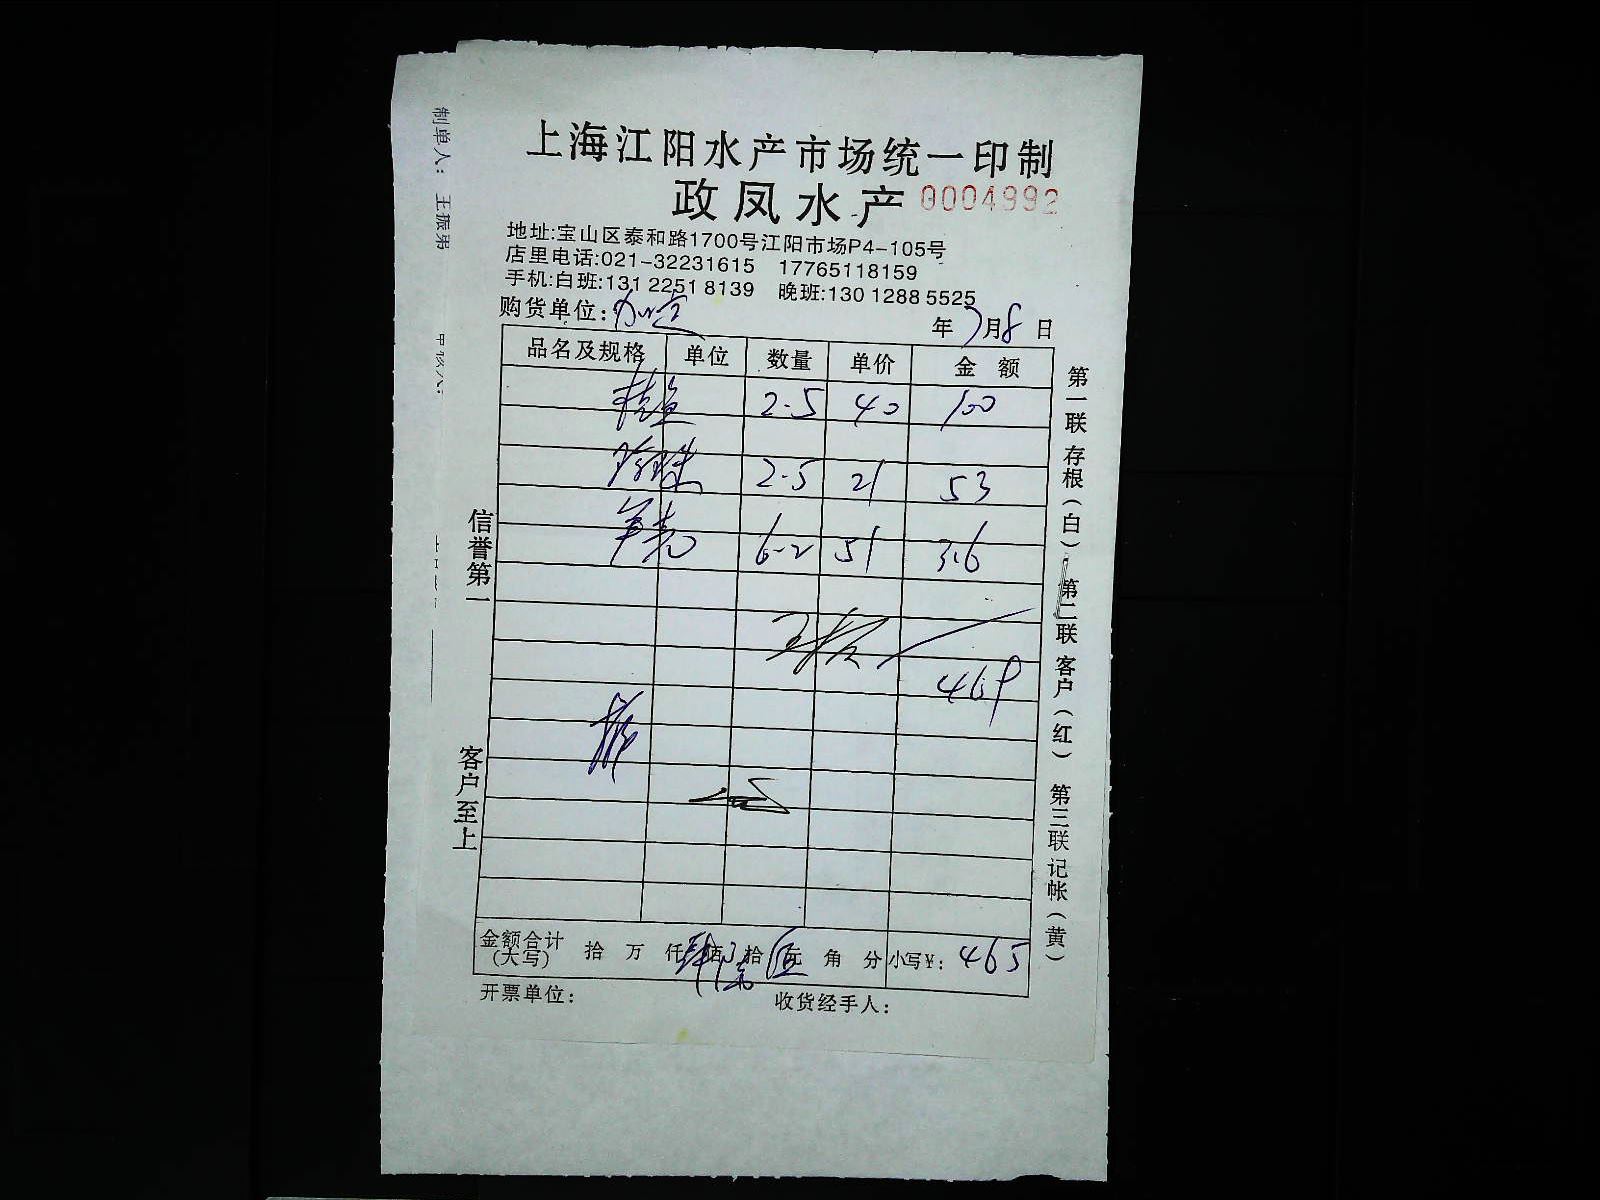 制单人： 王振弟
上海江阳水产市场统一印制
政凤水产 0004992
地址:宝山区泰和路1700号江阳市场P4-105号
店里电话:021-32231615 17765118159
手机:白班:131 2251 8139 晚班:130 1288 5525
购货单位:
年 7月8日
品名及规格 单位 数量 单价 金 额
2.5 40 100
2.5 21 53
6.2 51 316
469
金额合计 (大写) 拾 万 仟 肆 佰 拾 伍 元 角 分 小写¥: 465
开票单位: 收货经手人:
信誉第一 客户至上
第一联 存根(白) 第二联 客户(红) 第三联 记帐(黄)